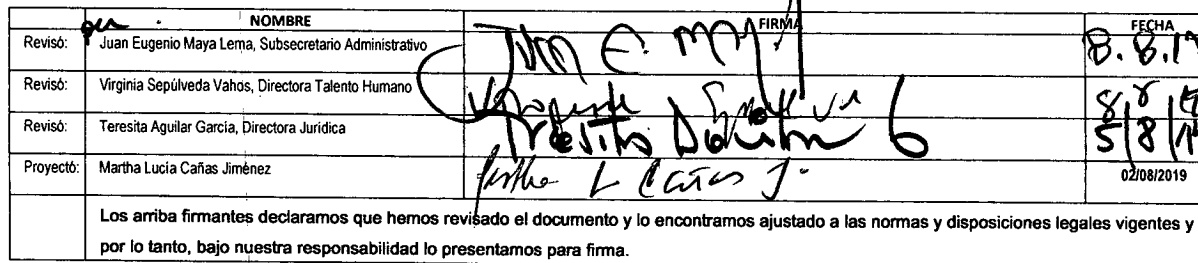 NOMBRE FIRMA FECHA
Revisó: Juan Eugenio Maya Lema, Subsecretario Administrativo Juan E. May 8.8.19
Revisó: Virginia Sepúlveda Vahos, Directora Talento Humano
Revisó: Teresita Aguilar García, Directora Jurídica Teresita 5/8/19
Proyectó: Martha Lucía Cañas Jiménez Martha L Cañas J. 02/08/2019
Los arriba firmantes declaramos que hemos revisado el documento y lo encontramos ajustado a las normas y disposiciones legales vigentes y
por lo tanto, bajo nuestra responsabilidad lo presentamos para firma.